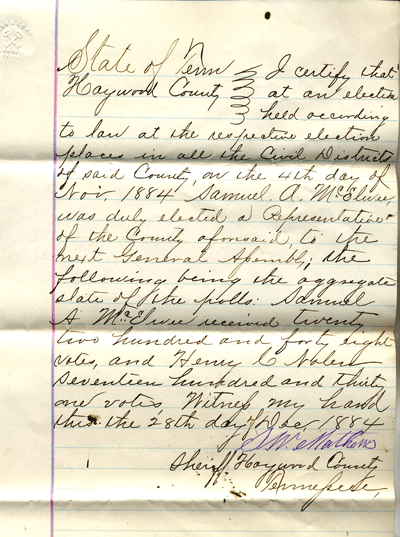 State of Tenn
Haywood County
I certify that
at an election
held according
to law at the respective election
places in all the Civil Districts
of said County, on the 4th day of
Nov. 1884 Samuel. A. McElwee
was duly elected a Representative
of the County aforesaid, to the
next General Assembly; the
following being the aggregate
state of the polls: Samuel
A McElwee received twenty
two hundred and forty eight
votes, and Henry C Nolen
Seventeen hundred and thirty
one votes, Witness my hand
this the 28th day of Dec, 1884
Sheriff Haywood County
Tennessee,